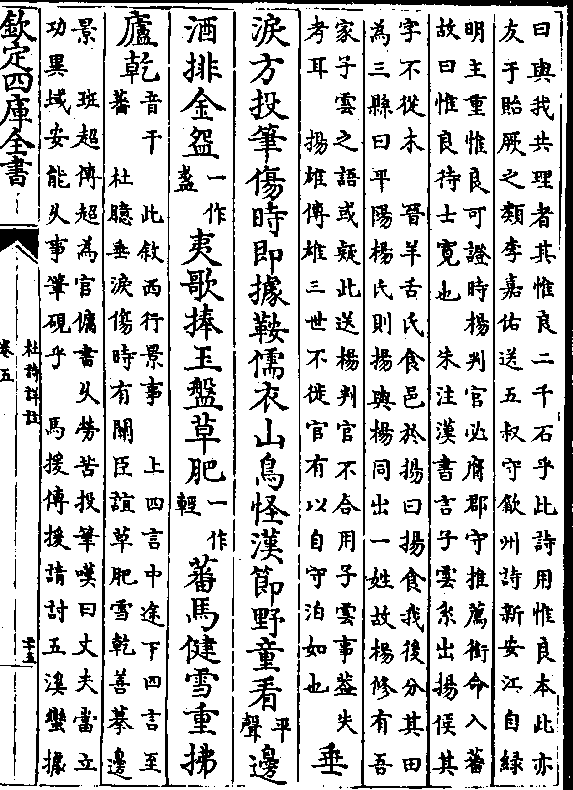 曰與我共理者其惟良二千石乎此詩用惟良本此亦
友于貽厥之類李嘉佑送五叔守歙州詩新安江自緑
明主重惟良可證時楊判官必膺郡守推薦銜命入蕃
故曰惟良待士寬也 朱注漢書言子雲系出揚侯其
字不從木 晉羊舌氏食邑於揚曰揚食我後分其田
為三縣曰平陽楊氏則揚與楊同出一姓故楊修有吾
家子雲之語或疑此送楊判官不合用子雲事葢失
考耳 揚雄傳雄三世不徙官有以自守泊如也
垂
淚方投筆傷時即據鞍儒衣山鳥怪漢節野童看平聲邊
酒排金盌一作盞夷歌捧玉盤草肥一作輕蕃馬健雪重拂
廬乾
音干 此敘西行景事 上四言中途下四言至
蕃 杜臆垂淚傷時有關臣誼草肥雪乾善摹邊
景 班超傳超為官傭書久勞苦投筆嘆曰丈夫當立
功異域安能久事筆硯乎 馬援傳援請討五溪蠻據
欽定四庫全書
杜詩詳註
卷五